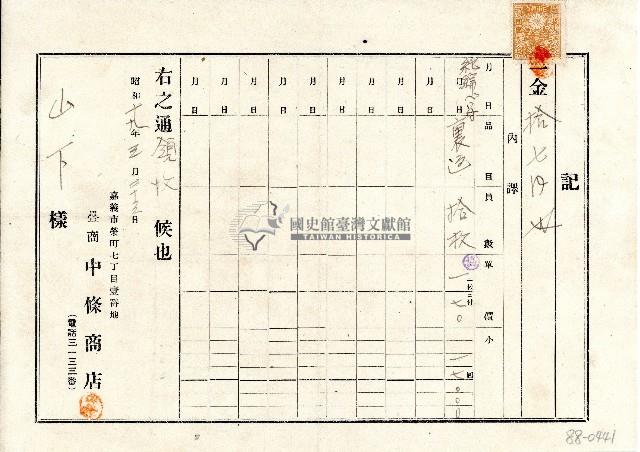 記
一金 拾七円也
内譯
月 日 品目 員數 單價 小
裏返 拾枚 一枚ニ付 一七〇 一七〇〇
月 日
月 日
月 日
月 日
月 日
月 日
月 日
月 日
右之通領收候也
昭和十九年三月三十三日
嘉義市榮町七丁目壹番地
疊商 中條商店
(電話三一三三番)
山下 樣
國史館臺灣文獻館
TAIWAN HISTORICA
88-0441